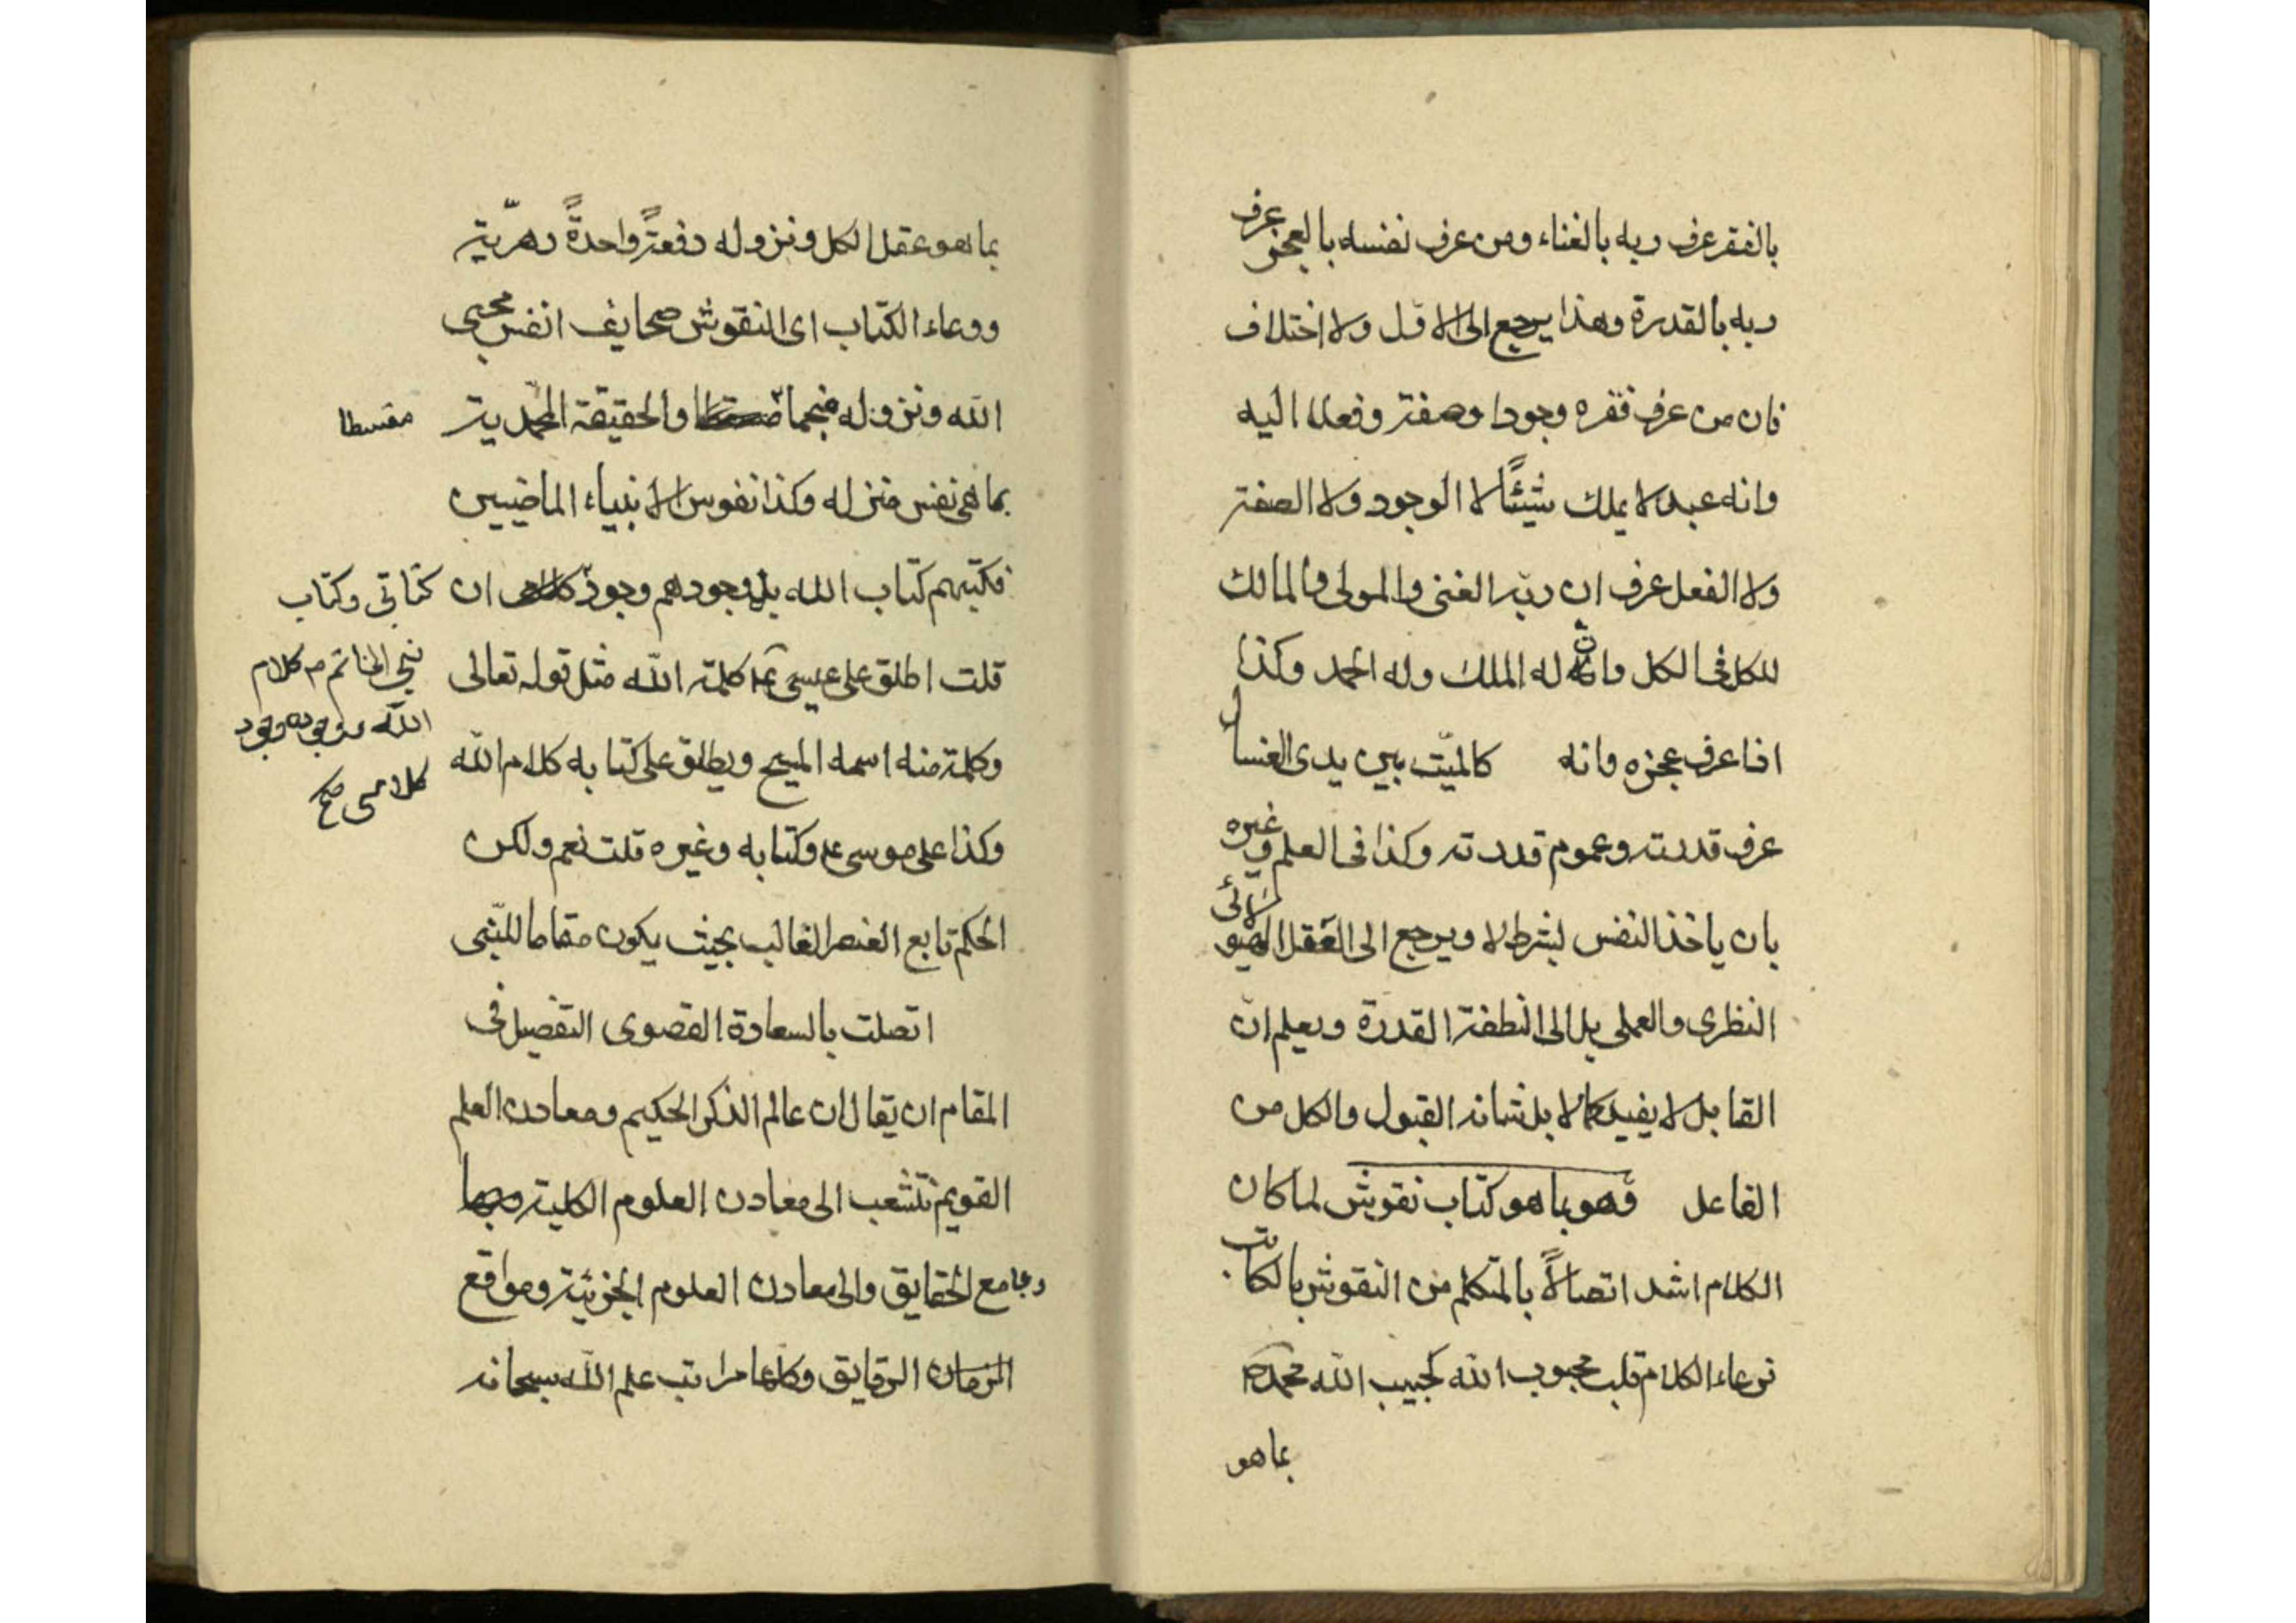 بالفقر عرف ربه بالغناء ومن عرف نفسه بالعجز عرف
ربه بالقدرة وهذا يرجع الى الاول ولا اختلاف
فان من عرف فقره وجودا وصفة وفعلا اليه
وانه عبد لا يملك شيئًا لا الوجود ولا الصفة
ولا الفعل عرف ان ربه الغنى والمولى والمالك
للكل فى الكل وانه له الملك وله الحمد وكذا
اذا عرف عجزه وانه كالميّت بين يدى الغسال
عرف قدرته وعموم قدرته وكذا فى العلم وغيره
بان ياخذ النفس بشرط لا ويرجع الى العقل الهيولائى
النظرى والعملى بل الى النطفة القذرة ويعلم ان
القابل لا يفيد كمالا بل شانه القبول والكل من
الفاعل قوهو بما هو كتاب نقوش لما كان
الكلام اشد اتصالاً بالمتكلم من النقوش بالكاتب
فوعاء الكلام قلب محبوب الله كحبيب الله محمد ص
بما هو
بما هو عقل الكل ونزوله دفعةً واحدةً دهريّة
ووعاء الكتاب اى النقوش صحايف انفس محبى
الله ونزوله منجما والحقيقة المحمّدية
مقسطا
بما هى نفس منزله وكذا نفوس الانبياء الماضيين
فكتبهم كتاب الله بل وجودهم وجودٌ ان
كتابى وكتاب
نبى الخاتم ص كلام
الله ووجوده وجود
كلامى صح
قلت اطلق على عيسى ع كلمة الله مثل قوله تعالى
وكلمة منه اسمه المسيح ويطلق على كتابه كلام الله
وكذا على موسى ع وكتابه وغيره قلت نعم ولكن
الحكم تابع العنصر الغالب بحيث يكون مقاما للنّبى
اتصلت بالسعادة القصوى التفصيل فى
المقام ان يقال ان عالم الذكر الحكيم ومعادن العلم
القويم تتشعب الى معادن العلوم الكلية
ومجامع الحقايق والى معادن العلوم الجزئية ومواقع
الرقايق وكلها مراتب علم الله سبحانه